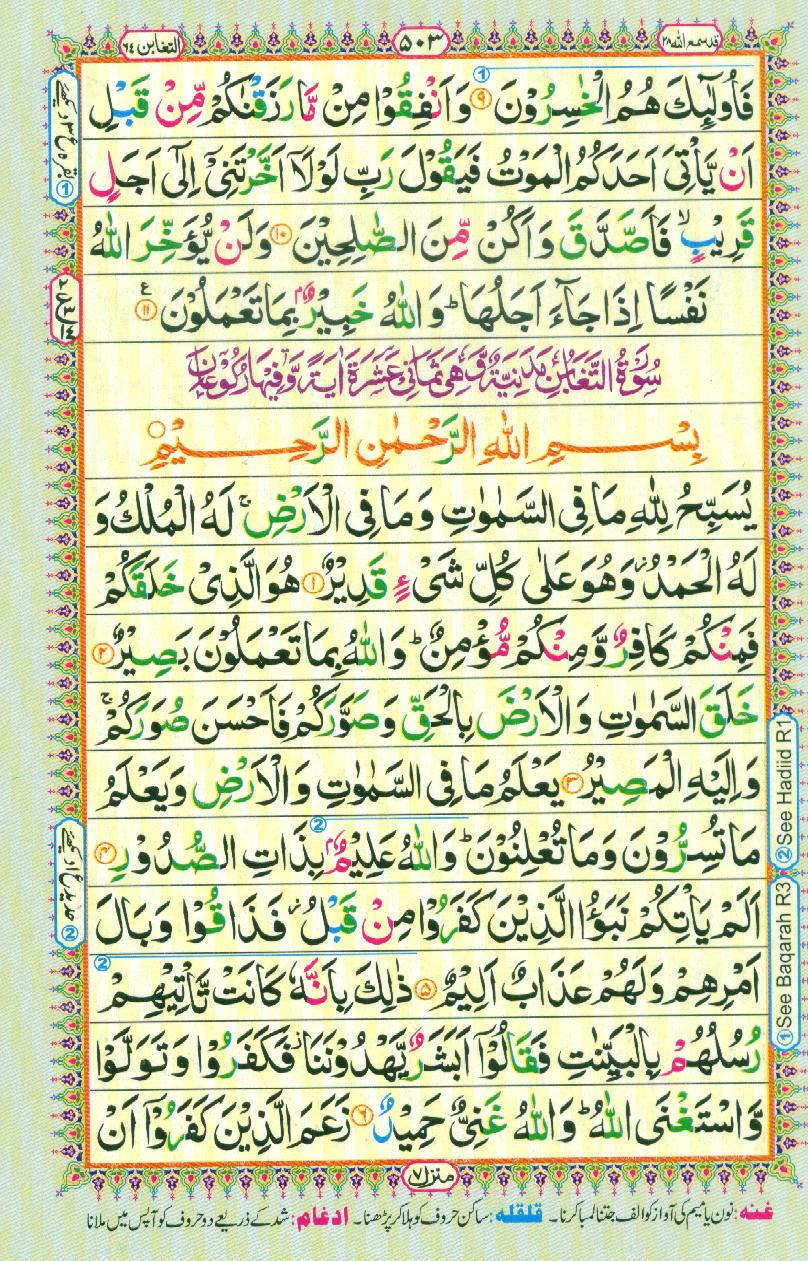 قد سمع الله ٢٨
٥٠٣
التغابن ٦٤
فَاُولٰٓئِكَ هُمُ الْخٰسِرُوْنَ ۹ وَاَنْفِقُوْا مِنْ مَّا رَزَقْنٰكُمْ مِّنْ قَبْلِ
اَنْ يَّاْتِىَ اَحَدَكُمُ الْمَوْتُ فَيَقُوْلَ رَبِّ لَوْلَاۤ اَخَّرْتَنِىْۤ اِلٰٓى اَجَلٍ
قَرِيْبٍۙ فَاَصَّدَّقَ وَاَكُنْ مِّنَ الصّٰلِحِيْنَ ۱۰ وَلَنْ يُّؤَخِّرَ اللّٰهُ
نَفْسًا اِذَا جَآءَ اَجَلُهَاؕ وَاللّٰهُ خَبِيْرٌۢ بِمَا تَعْمَلُوْنَ ۱۱ ع
سُوْرَةُ التَّغَابُنِ مَدَنِيَّةٌ وَّهِىَ ثَمَانِىَ عَشَرَةَ اٰيَةً وَّفِيْهَا رُكُوْعَانِ
بِسْمِ اللّٰهِ الرَّحْمٰنِ الرَّحِيْمِ
يُسَبِّحُ لِلّٰهِ مَا فِى السَّمٰوٰتِ وَمَا فِى الْاَرْضِۚ لَهُ الْمُلْكُ وَ
لَهُ الْحَمْدُؗ وَهُوَ عَلٰى كُلِّ شَىْءٍ قَدِيْرٌ ۱ هُوَ الَّذِىْ خَلَقَكُمْ
فَمِنْكُمْ كَافِرٌ وَّمِنْكُمْ مُّؤْمِنٌؕ وَاللّٰهُ بِمَا تَعْمَلُوْنَ بَصِيْرٌ ۲
خَلَقَ السَّمٰوٰتِ وَالْاَرْضَ بِالْحَقِّ وَصَوَّرَكُمْ فَاَحْسَنَ صُوَرَكُمْۚ
وَاِلَيْهِ الْمَصِيْرُ ۳ يَعْلَمُ مَا فِى السَّمٰوٰتِ وَالْاَرْضِ وَيَعْلَمُ
مَا تُسِرُّوْنَ وَمَا تُعْلِنُوْنَؕ وَاللّٰهُ عَلِيْمٌۢ بِذَاتِ الصُّدُوْرِ ۴
اَلَمْ يَاْتِكُمْ نَبَؤُا الَّذِيْنَ كَفَرُوْا مِنْ قَبْلُؗ فَذَاقُوْا وَبَالَ
اَمْرِهِمْ وَلَهُمْ عَذَابٌ اَلِيْمٌ ۵ ذٰلِكَ بِاَنَّهٗ كَانَتْ تَّاْتِيْهِمْ
رُسُلُهُمْ بِالْبَيِّنٰتِ فَقَالُوْۤا اَبَشَرٌ يَّهْدُوْنَنَاؗ فَكَفَرُوْا وَتَوَلَّوْا
وَّاسْتَغْنَى اللّٰهُؕ وَاللّٰهُ غَنِىٌّ حَمِيْدٌ ۶ زَعَمَ الَّذِيْنَ كَفَرُوْۤا اَنْ
منزل ۷
غنه: نون یا میم کی آواز کو الف جتنا لمبا کرنا۔ قلقله: ساکن حروف کو ہلا کر پڑھنا۔ ادغام: شد کے ذریعے دو حروف کو آپس میں ملانا
① بقره ع ۳ دیکھئے
② حدید ع ۱ دیکھئے
② See Hadiid R1
① See Baqarah R3